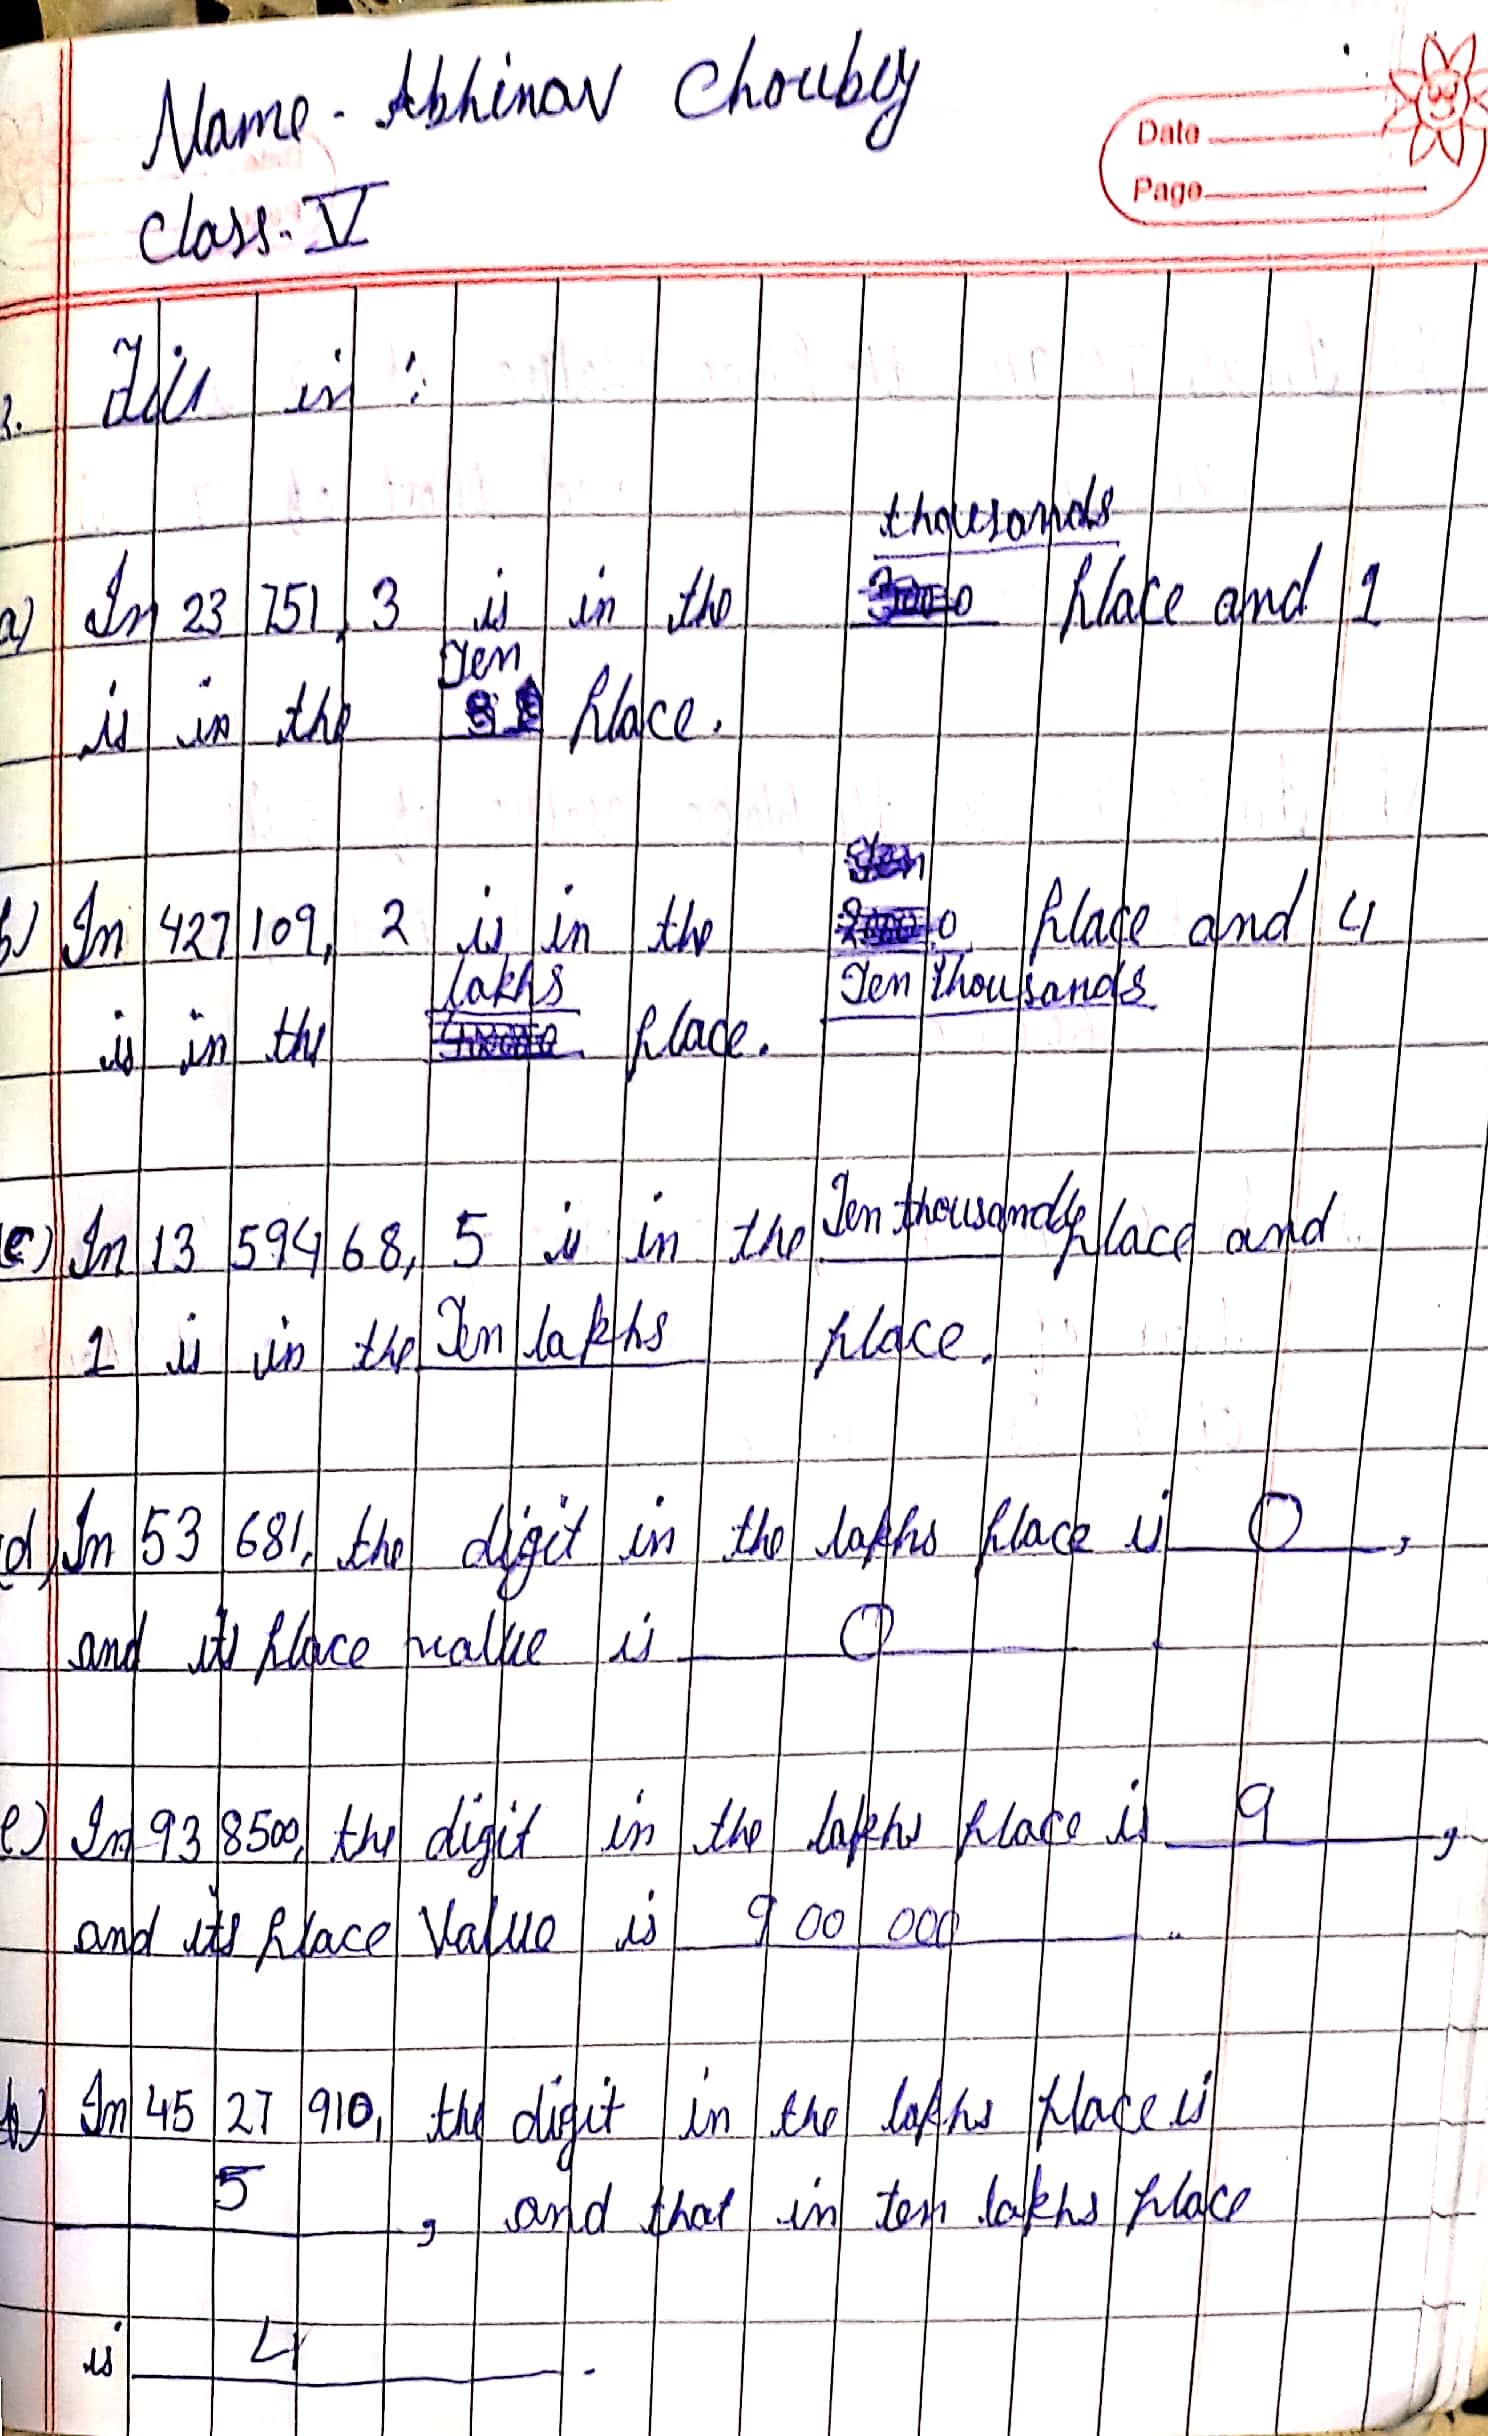 Name - Abhinav Choubey
Class - V
Date
Page
Fill in :
thousands
a) In 23 751, 3 is in the place and 1
Ten
is in the place.
b) In 427 109, 2 is in the place and 4
lakhs Ten thousands
is in the place.
(c) In 13 594 68, 5 is in the Ten thousands place and
1 is in the Ten lakhs place.
(d) In 53 681, the digit in the lakhs place is 0,
and its place value is 0
e) In 93 8500, the digit in the lakhs place is 9,
and its place Value is 9 00 000.
In 45 27 910, the digit in the lakhs place is
5, and that in ten lakhs place
is 4.